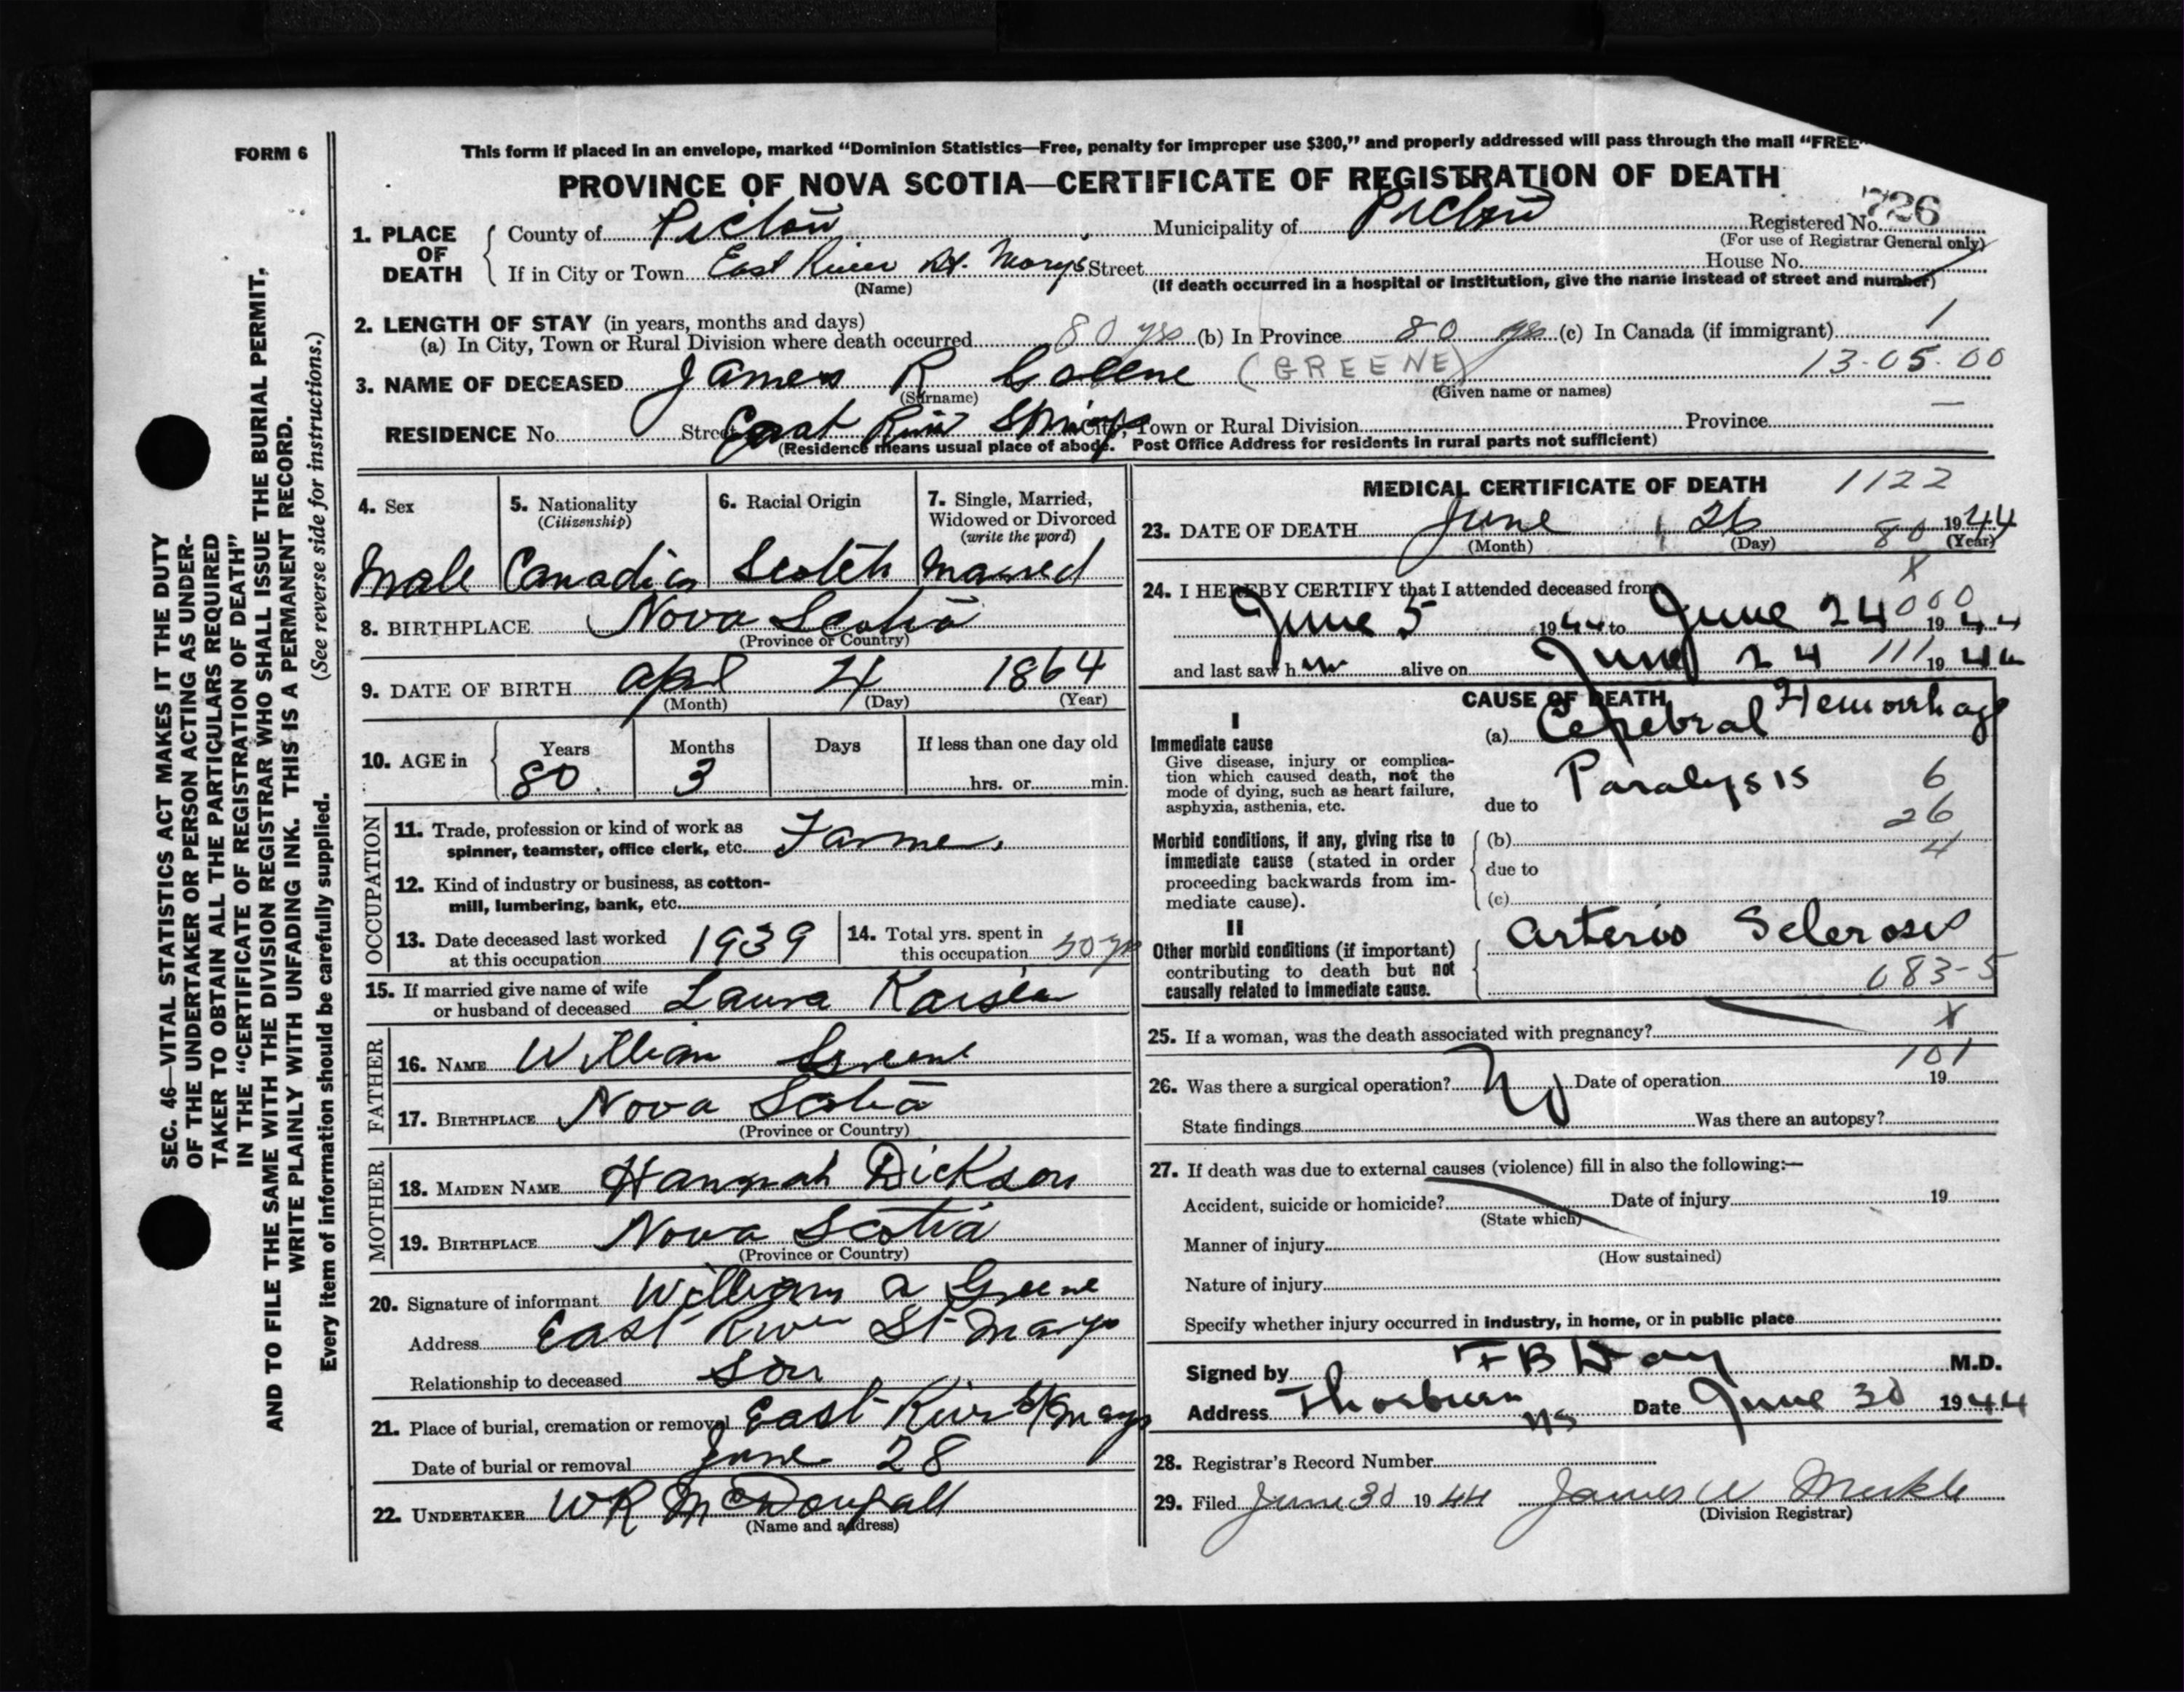 FORM 6
This form if placed in an envelope, marked “Dominion Statistics—Free, penalty for improper use $300,” and properly addressed will pass through the mail “FREE”
PROVINCE OF NOVA SCOTIA—CERTIFICATE OF REGISTRATION OF DEATH
726
1. PLACE OF DEATH
County of Pictou Municipality of Pictou Registered No.
(For use of Registrar General only)
If in City or Town East River St. Marys Street House No.
(Name) (If death occurred in a hospital or institution, give the name instead of street and number)
2. LENGTH OF STAY (in years, months and days)
(a) In City, Town or Rural Division where death occurred 80 yrs (b) In Province 80 yrs (c) In Canada (if immigrant)
3. NAME OF DECEASED James R Greene (GREENE) 13-05-00
(Surname) (Given name or names)
RESIDENCE No. Street East River City, Town or Rural Division Province —
(Residence means usual place of abode. Post Office Address for residents in rural parts not sufficient)
SEC. 46—VITAL STATISTICS ACT MAKES IT THE DUTY
OF THE UNDERTAKER OR PERSON ACTING AS UNDER-
TAKER TO OBTAIN ALL THE PARTICULARS REQUIRED
IN THE “CERTIFICATE OF REGISTRATION OF DEATH”
AND TO FILE THE SAME WITH THE DIVISION REGISTRAR WHO SHALL ISSUE THE BURIAL PERMIT.
WRITE PLAINLY WITH UNFADING INK. THIS IS A PERMANENT RECORD.
Every item of information should be carefully supplied. (See reverse side for instructions.)
4. Sex
Male
5. Nationality
(Citizenship)
Canadian
6. Racial Origin
Scotch
7. Single, Married,
Widowed or Divorced
(write the word)
Married
8. BIRTHPLACE Nova Scotia
(Province or Country)
9. DATE OF BIRTH April 4 1864
(Month) (Day) (Year)
10. AGE in
Years Months Days If less than one day old
80 3 hrs. or min.
OCCUPATION
11. Trade, profession or kind of work as
spinner, teamster, office clerk, etc. Farmer
12. Kind of industry or business, as cotton-
mill, lumbering, bank, etc.
13. Date deceased last worked
at this occupation 1939
14. Total yrs. spent in
this occupation 50 yrs
15. If married give name of wife
or husband of deceased Laura
FATHER
16. NAME William Greene
17. BIRTHPLACE Nova Scotia
(Province or Country)
MOTHER
18. MAIDEN NAME Hannah Dickson
19. BIRTHPLACE Nova Scotia
(Province or Country)
20. Signature of informant William A Greene
Address East River St Marys
Relationship to deceased Son
21. Place of burial, cremation or removal East River St Marys
Date of burial or removal June 28
22. UNDERTAKER WR McDougall
(Name and address)
MEDICAL CERTIFICATE OF DEATH 1122
23. DATE OF DEATH June 26 80 1944
(Month) (Day) (Year)
X
24. I HEREBY CERTIFY that I attended deceased from
000
June 5 1944 to June 24 1944
and last saw him alive on June 24 111 1944
CAUSE OF DEATH
I
Immediate cause
Give disease, injury or complica-
tion which caused death, not the
mode of dying, such as heart failure,
asphyxia, asthenia, etc.
(a) Cerebral Hemorrhage
due to Paralysis 6
26
Morbid conditions, if any, giving rise to
immediate cause (stated in order
proceeding backwards from im-
mediate cause).
(b) 4
due to
(c)
II
Other morbid conditions (if important)
contributing to death but not
causally related to immediate cause.
Arterio Sclerosis
083-5
25. If a woman, was the death associated with pregnancy? X
101
26. Was there a surgical operation? No Date of operation 19
State findings Was there an autopsy?
27. If death was due to external causes (violence) fill in also the following:—
Accident, suicide or homicide? Date of injury 19
(State which)
Manner of injury
(How sustained)
Nature of injury
Specify whether injury occurred in industry, in home, or in public place
Signed by F B Day M.D.
Address Thorburn NS Date June 30 1944
28. Registrar's Record Number
29. Filed June 30 1944 James W
(Division Registrar)